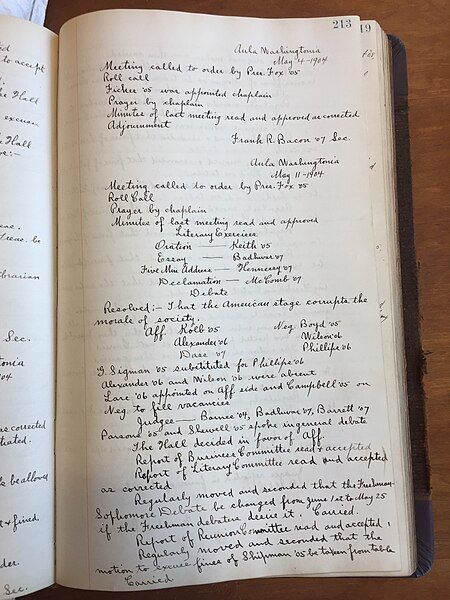 213
19
Aula Washingtonia
May 4-1904
Meeting called to order by Pres. Fox '05
Roll call
Fisher '05 was appointed chaplain
Prayer by chaplain
Minutes of last meeting read and approved as corrected
Adjournment
Frank R. Bacon '07 Sec.
Aula Washingtonia
May 11-1904
Meeting called to order by Pres. Fox '05
Roll Call
Prayer by chaplain
Minutes of last meeting read and approved
Literary Exercises
Oration — Keith '05
Essay — Badhwer '07
Five Min Address — Hennessy '07
Declamation — McComb '07
Debate
Resolved:- That the American stage corrupts the
morals of society.
Aff. Kolb '05 Neg. Boyd '05
Alexander '06 Wilson '06
Dase '07 Phillips '06
G. Sigman '05 substituted for Phillips '06
Alexander '06 and Wilson '06 were absent
Lare '06 appointed on Aff side and Campbell '05 on
Neg. to fill vacancies
Judges — Barnes '04, Badhwer '07, Barrett '07
Parsons '05 and Slewell '05 spoke in general debate
The Hall decided in favor of Aff.
Report of Business Committee read & accepted
Report of Literary Committee read and accepted
as corrected
Regularly moved and seconded that the Freshman-
Sophomore Debate be changed from June 1st to May 25
if the Freshman debaters desire it. Carried.
Report of Reunion Committee read and accepted
Regularly moved and seconded that the
motion to excuse fines of Shipman '05 be taken from table
Carried
to accept
Hall
excuse
Hall
be
brarian
Sec.
tonia
904
as corrected
be allowed
& fined
Sec.